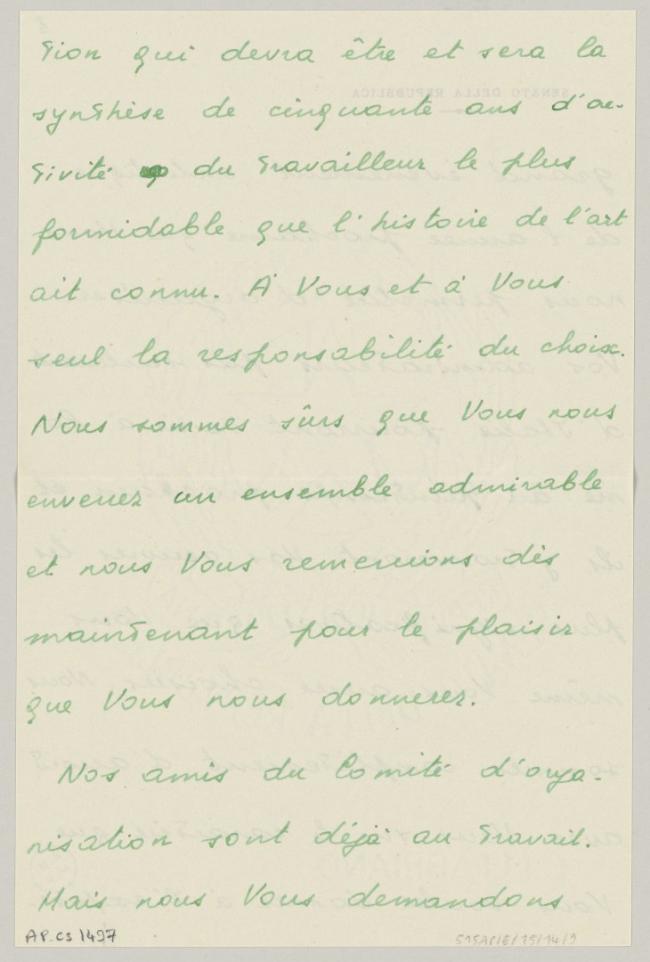 tion qui devra être et sera la
synthèse de cinquante ans d'ac-
tivité du travailleur le plus
formidable que l'histoire de l'art
ait connu. À Vous et à Vous
seul la responsabilité du choix.
Nous sommes sûrs que Vous nous
enverrez un ensemble admirable
et nous Vous remercions dès
maintenant pour le plaisir
que Vous nous donnerez.
Nos amis du Comité d'orga-
nisation sont déjà au travail.
Mais nous Vous demandons
AP.CS 1497